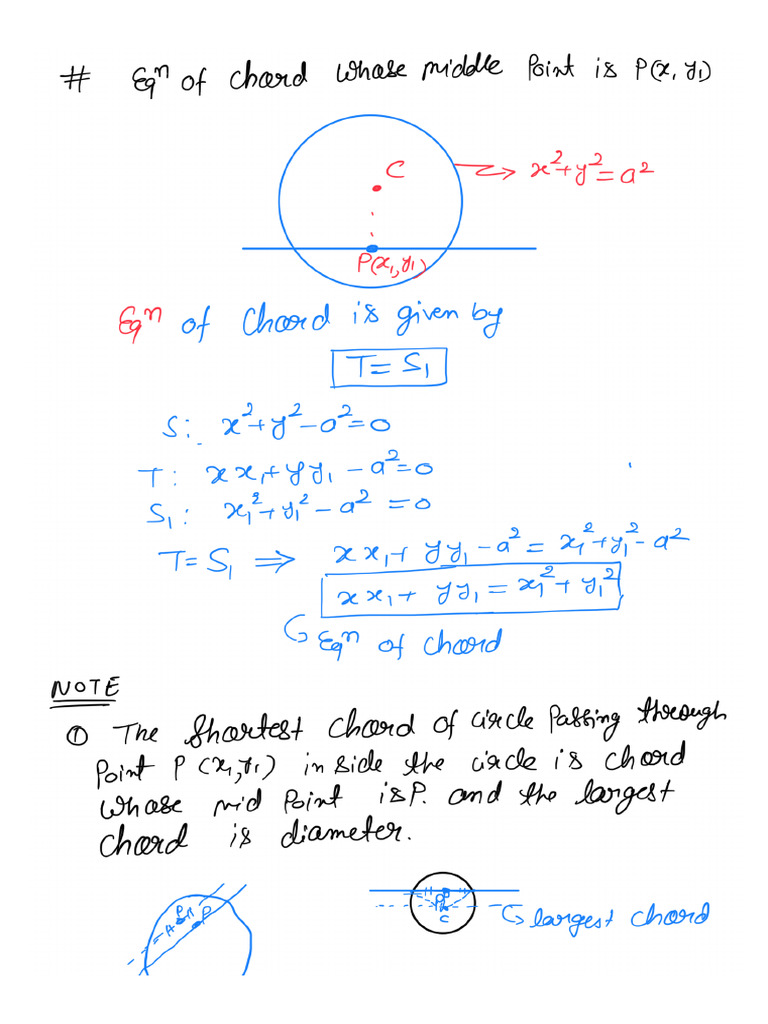 # Eqⁿ of chord whose middle Point is P(x, y₁)
C
x²+y²=a²
P(x₁,y₁)
Eqⁿ of chord is given by
T=S₁
S: x²+y²-a²=0
T: xx₁+yy₁-a²=0
S₁: x₁²+y₁²-a²=0
T=S₁ ⇒ xx₁+yy₁-a²=x₁²+y₁²-a²
xx₁+yy₁=x₁²+y₁²
Eqⁿ of chord
NOTE
① The shortest chord of circle passing through
Point P(x₁,y₁) inside the circle is chord
whose mid Point is P. and the largest
chord is diameter.
P
P
C
largest chord